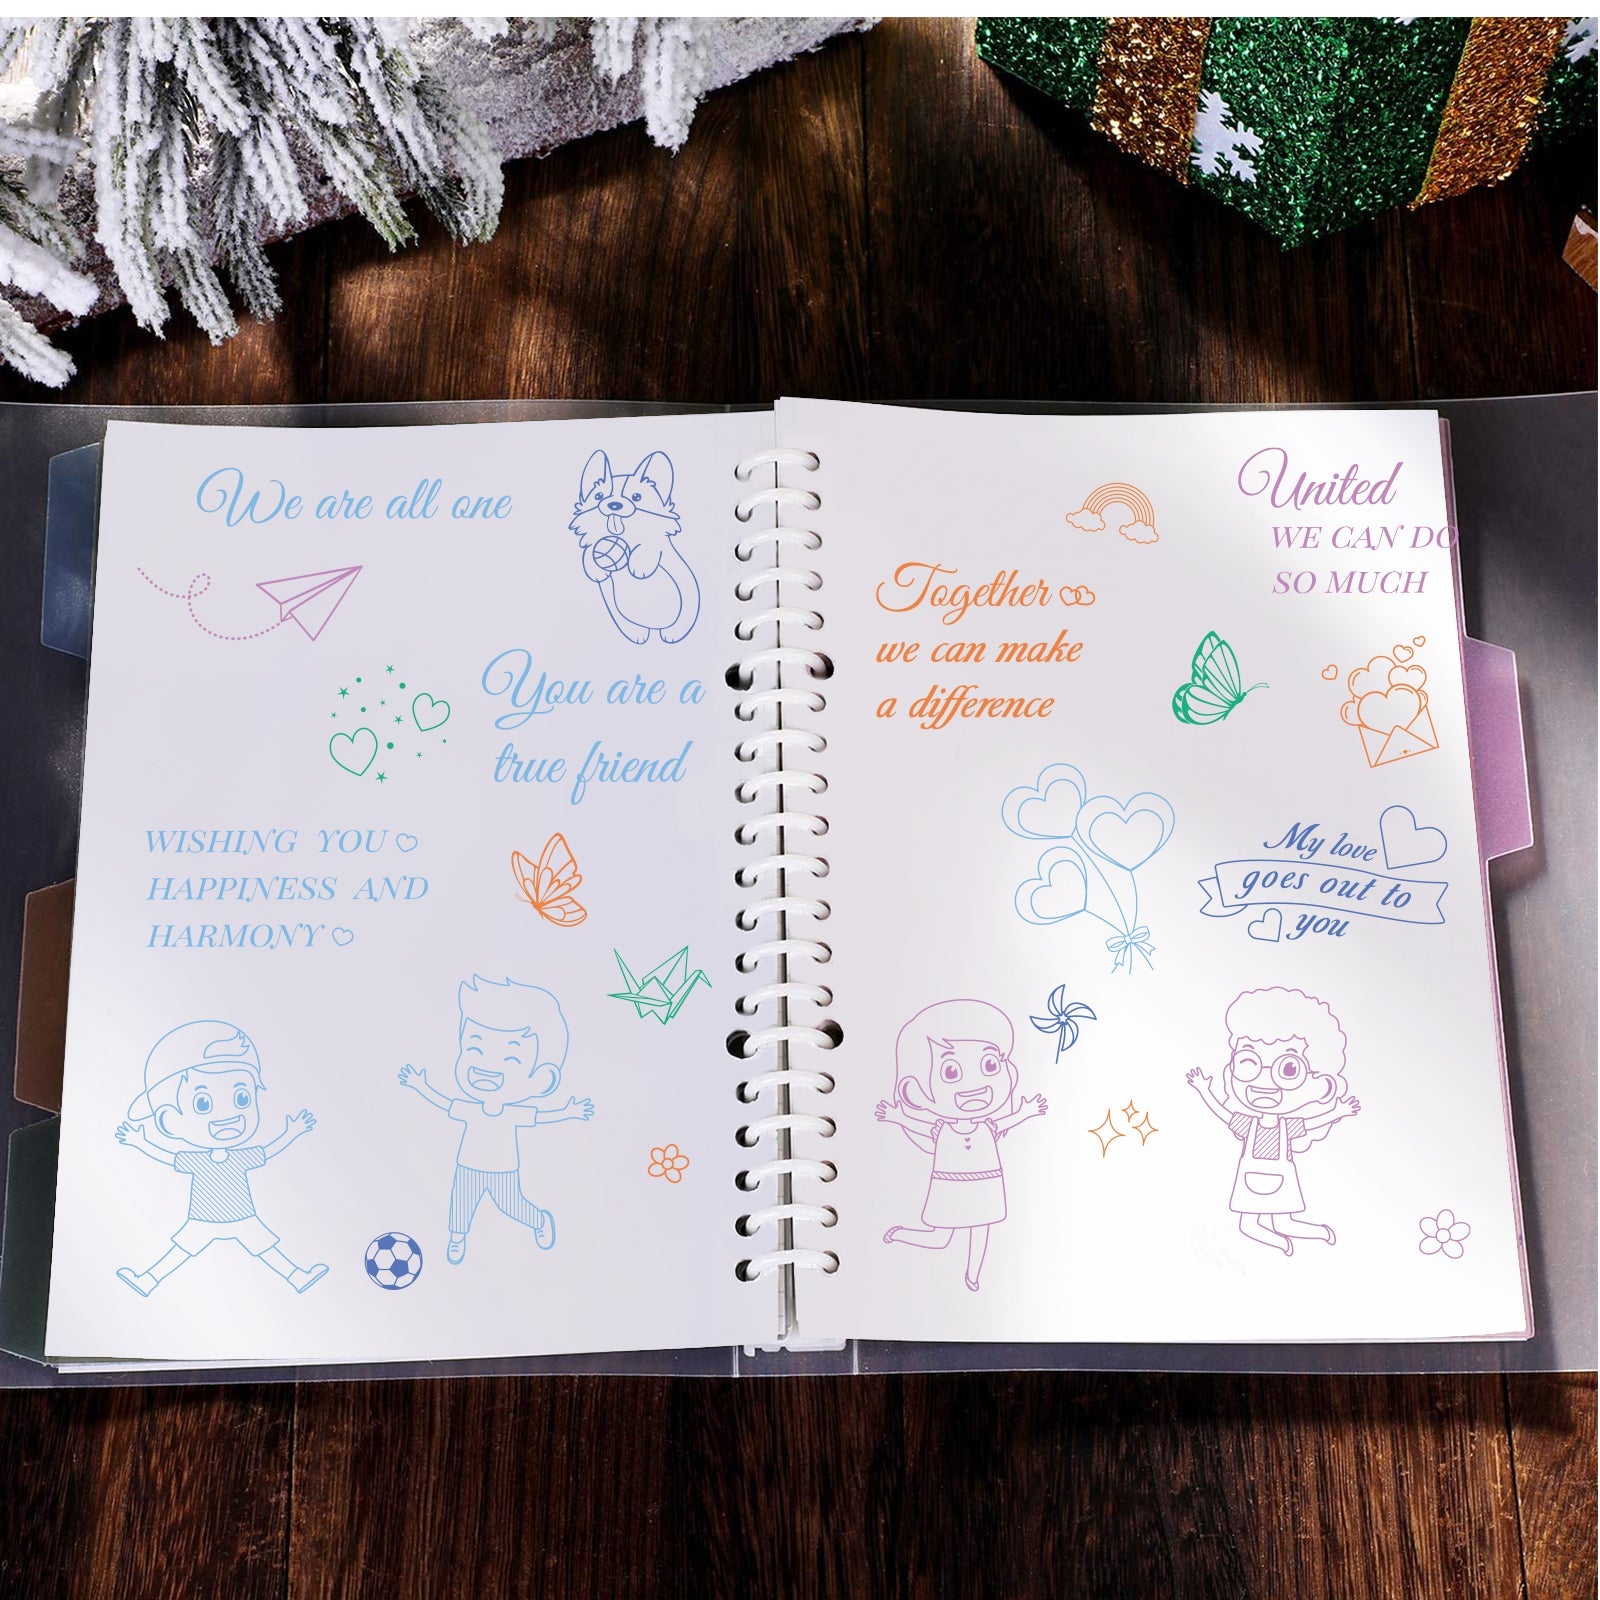 We are all one
You are a
true friend
WISHING YOU
HAPPINESS AND
HARMONY
United
WE CAN DO
SO MUCH
Together
we can make
a difference
My love
goes out to
you